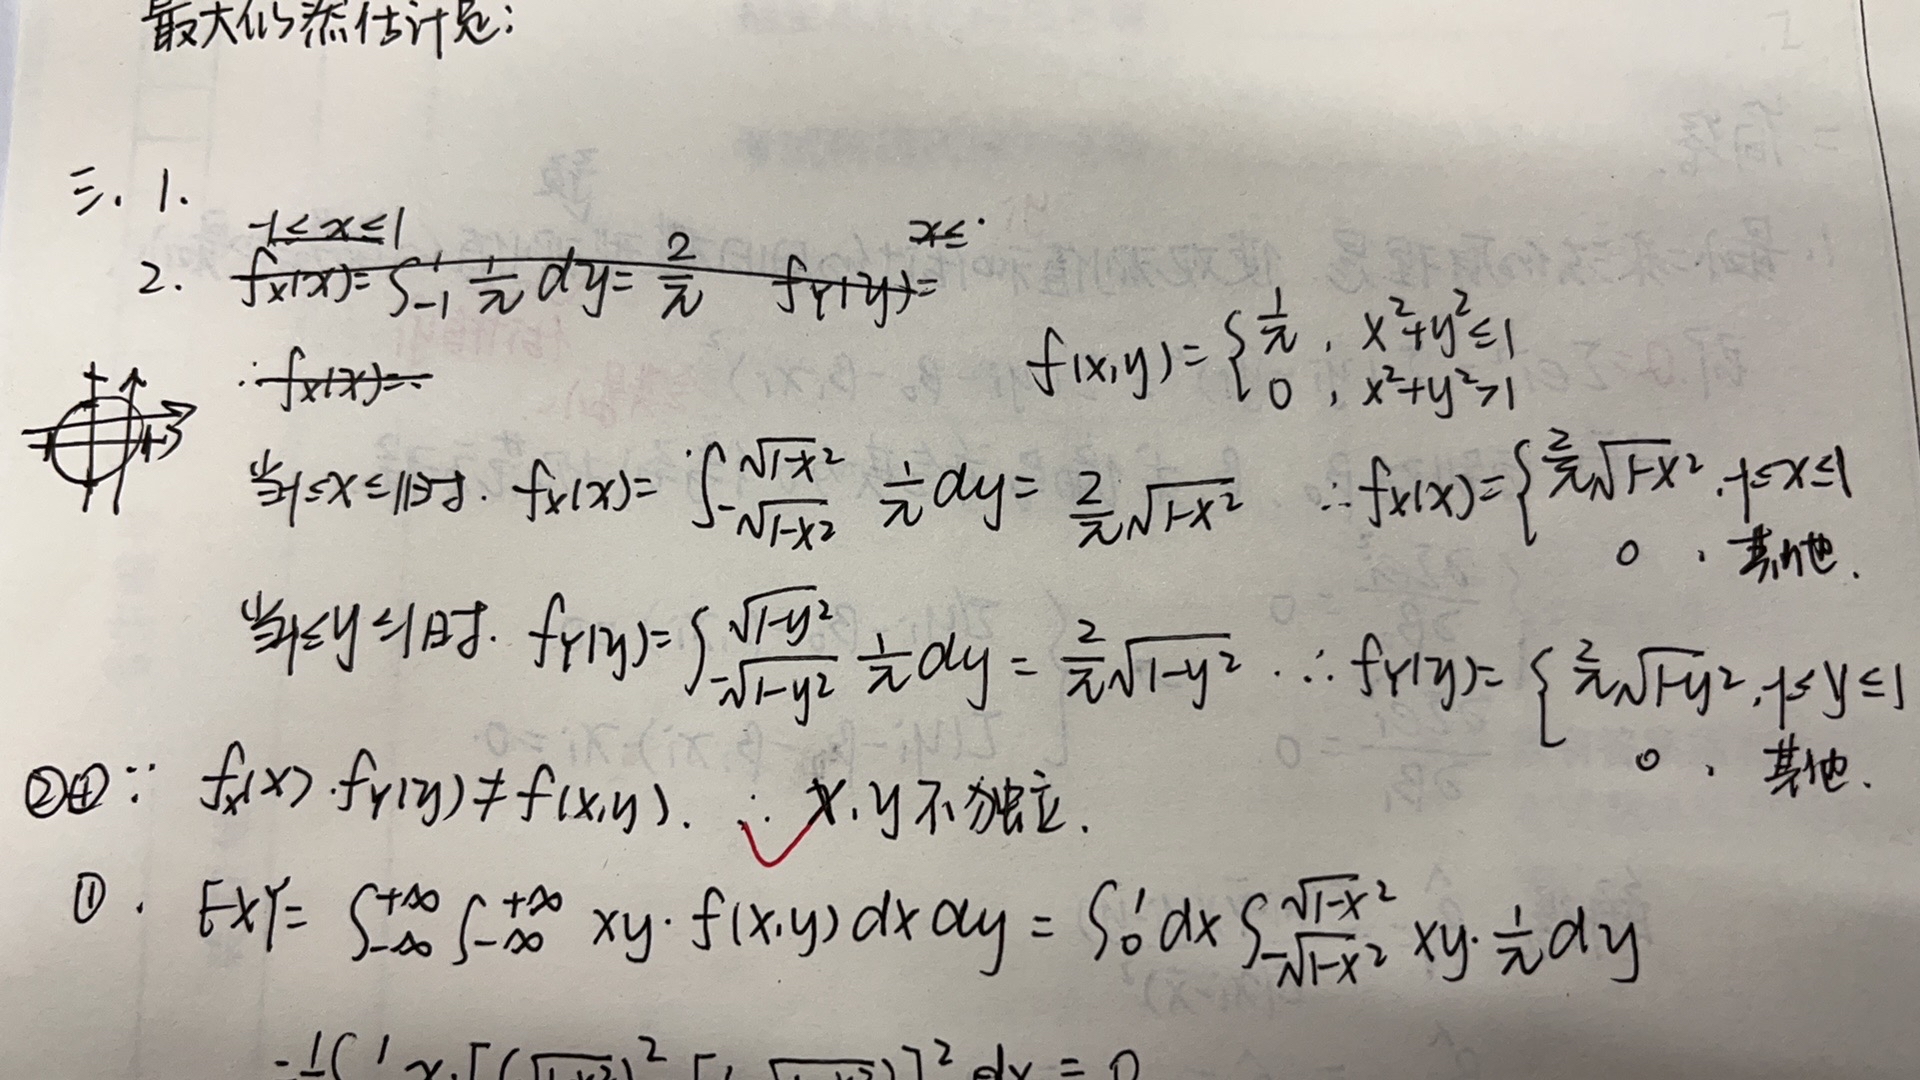 最大似然估计是:
三. 1.
-1≤x≤1 x≤
2. fX(x)=∫_{-1}^{1} 1/π dy = 2/π fY(y)=
∴ fX(x)=
f(x,y)={ 1/π , x²+y²≤1
0 , x²+y²>1
当-1≤x≤1时. fX(x)=∫_{-√(1-x²)}^{√(1-x²)} 1/π dy = 2/π √(1-x²) ∴ fX(x)={ 2/π √(1-x²) , -1≤x≤1
0 , 其他.
当-1≤y≤1时. fY(y)=∫_{-√(1-y²)}^{√(1-y²)} 1/π dy = 2/π √(1-y²) . ∴ fY(y)={ 2/π √(1-y²) , -1≤y≤1
0 , 其他.
②④ ∵ fX(x)·fY(y)≠f(x,y). ∴ X,y不独立.
①. EXY=∫_{-∞}^{+∞}∫_{-∞}^{+∞} xy·f(x,y)dxdy = ∫_{0}^{1}dx∫_{-√(1-x²)}^{√(1-x²)} xy·1/π dy